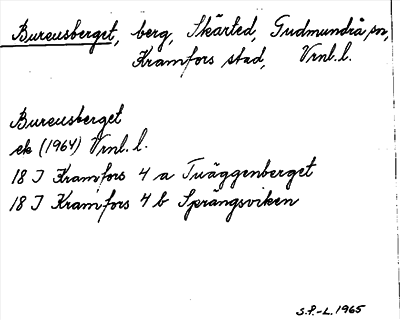 Bureusberget, berg, Skärted, Gudmundrå sn,
Kramfors stad, Vrnl. l.
Bureusberget
ek (1964) Vrnl. l.
18 I Kramfors 4 a Tväggenberget
18 I Kramfors 4 b Sprängsviken
S.F.-L. 1965